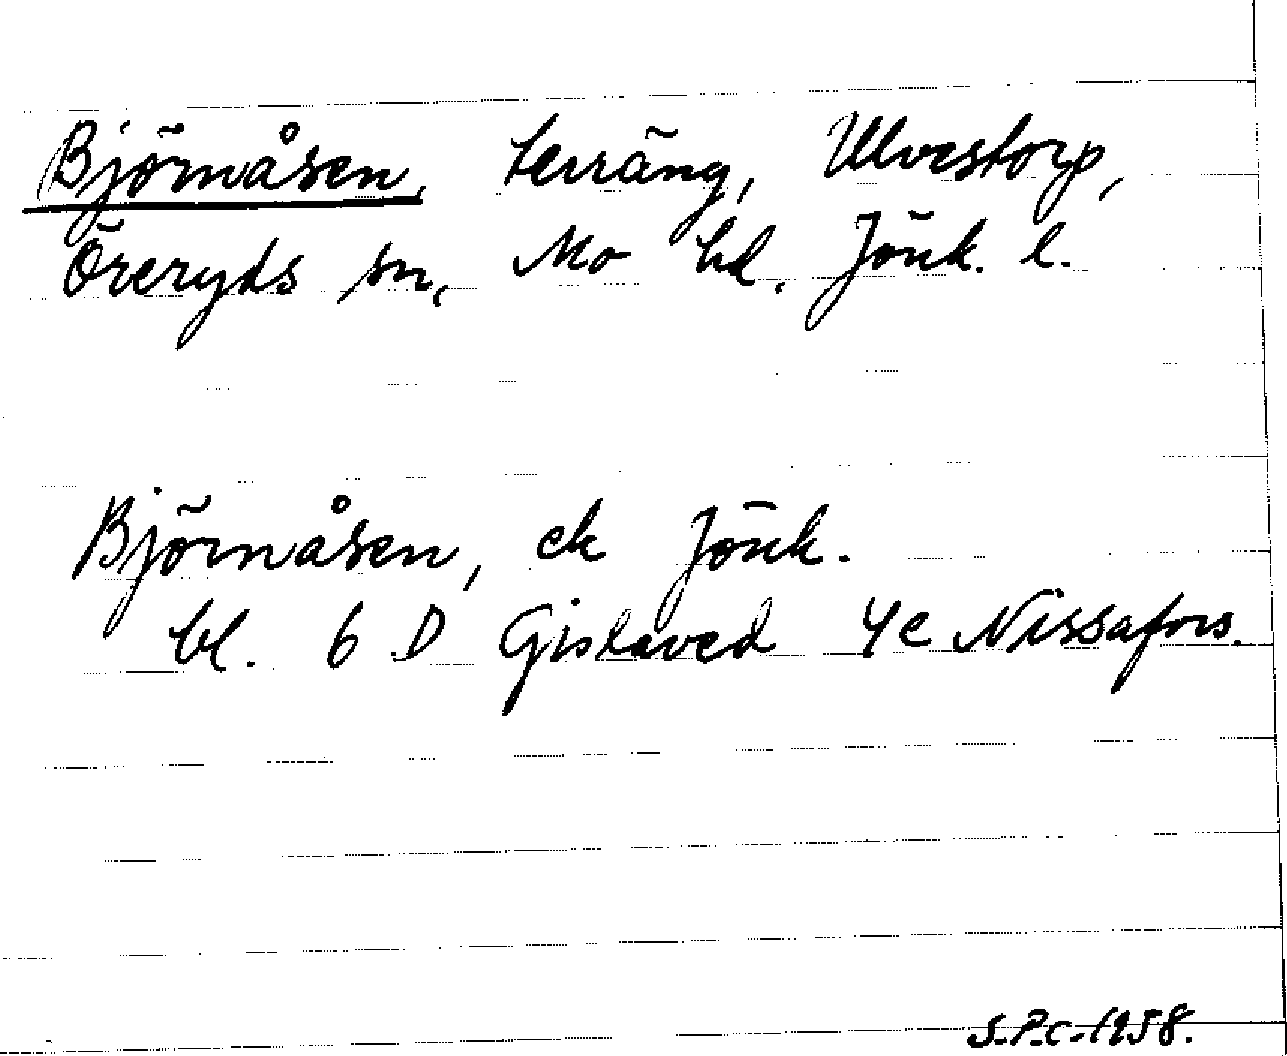 Björnåsen, terräng, Ulvestorp,
Öreryds sn, Mo hd, Jönk. l.
Björnåsen, ek Jönk.
bl. 6 D Gislaved 4e Nissafors.
S.P.C. 1958.